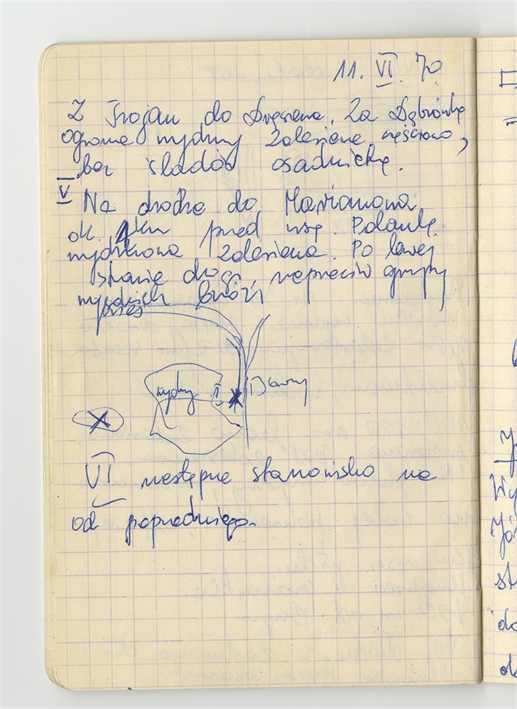 11. VI. 70
Z Trojan do Dręszewa. Za Dąbrówką
ogromne wydmy zalesione częściowo,
bez śladów osadnictwa.
V Na drodze do Marianowa
ok. 1 km przed wsią. Polanka
wydmowa, zalesiona. Po lewej
stronie drogi, naprzeciw grupy
wysokich brzóz
wydmy
VI następne stanowisko na
od poprzedniego.